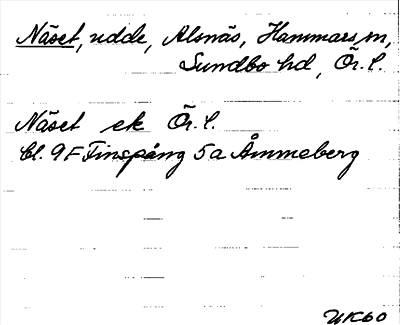 Näset, udde, Alsnäs, Hammars sn,
Sundbo hd, Ör. l.
Näset ek Ör. l.
bl. 9F Finspång 5a Åmmeberg
UK60